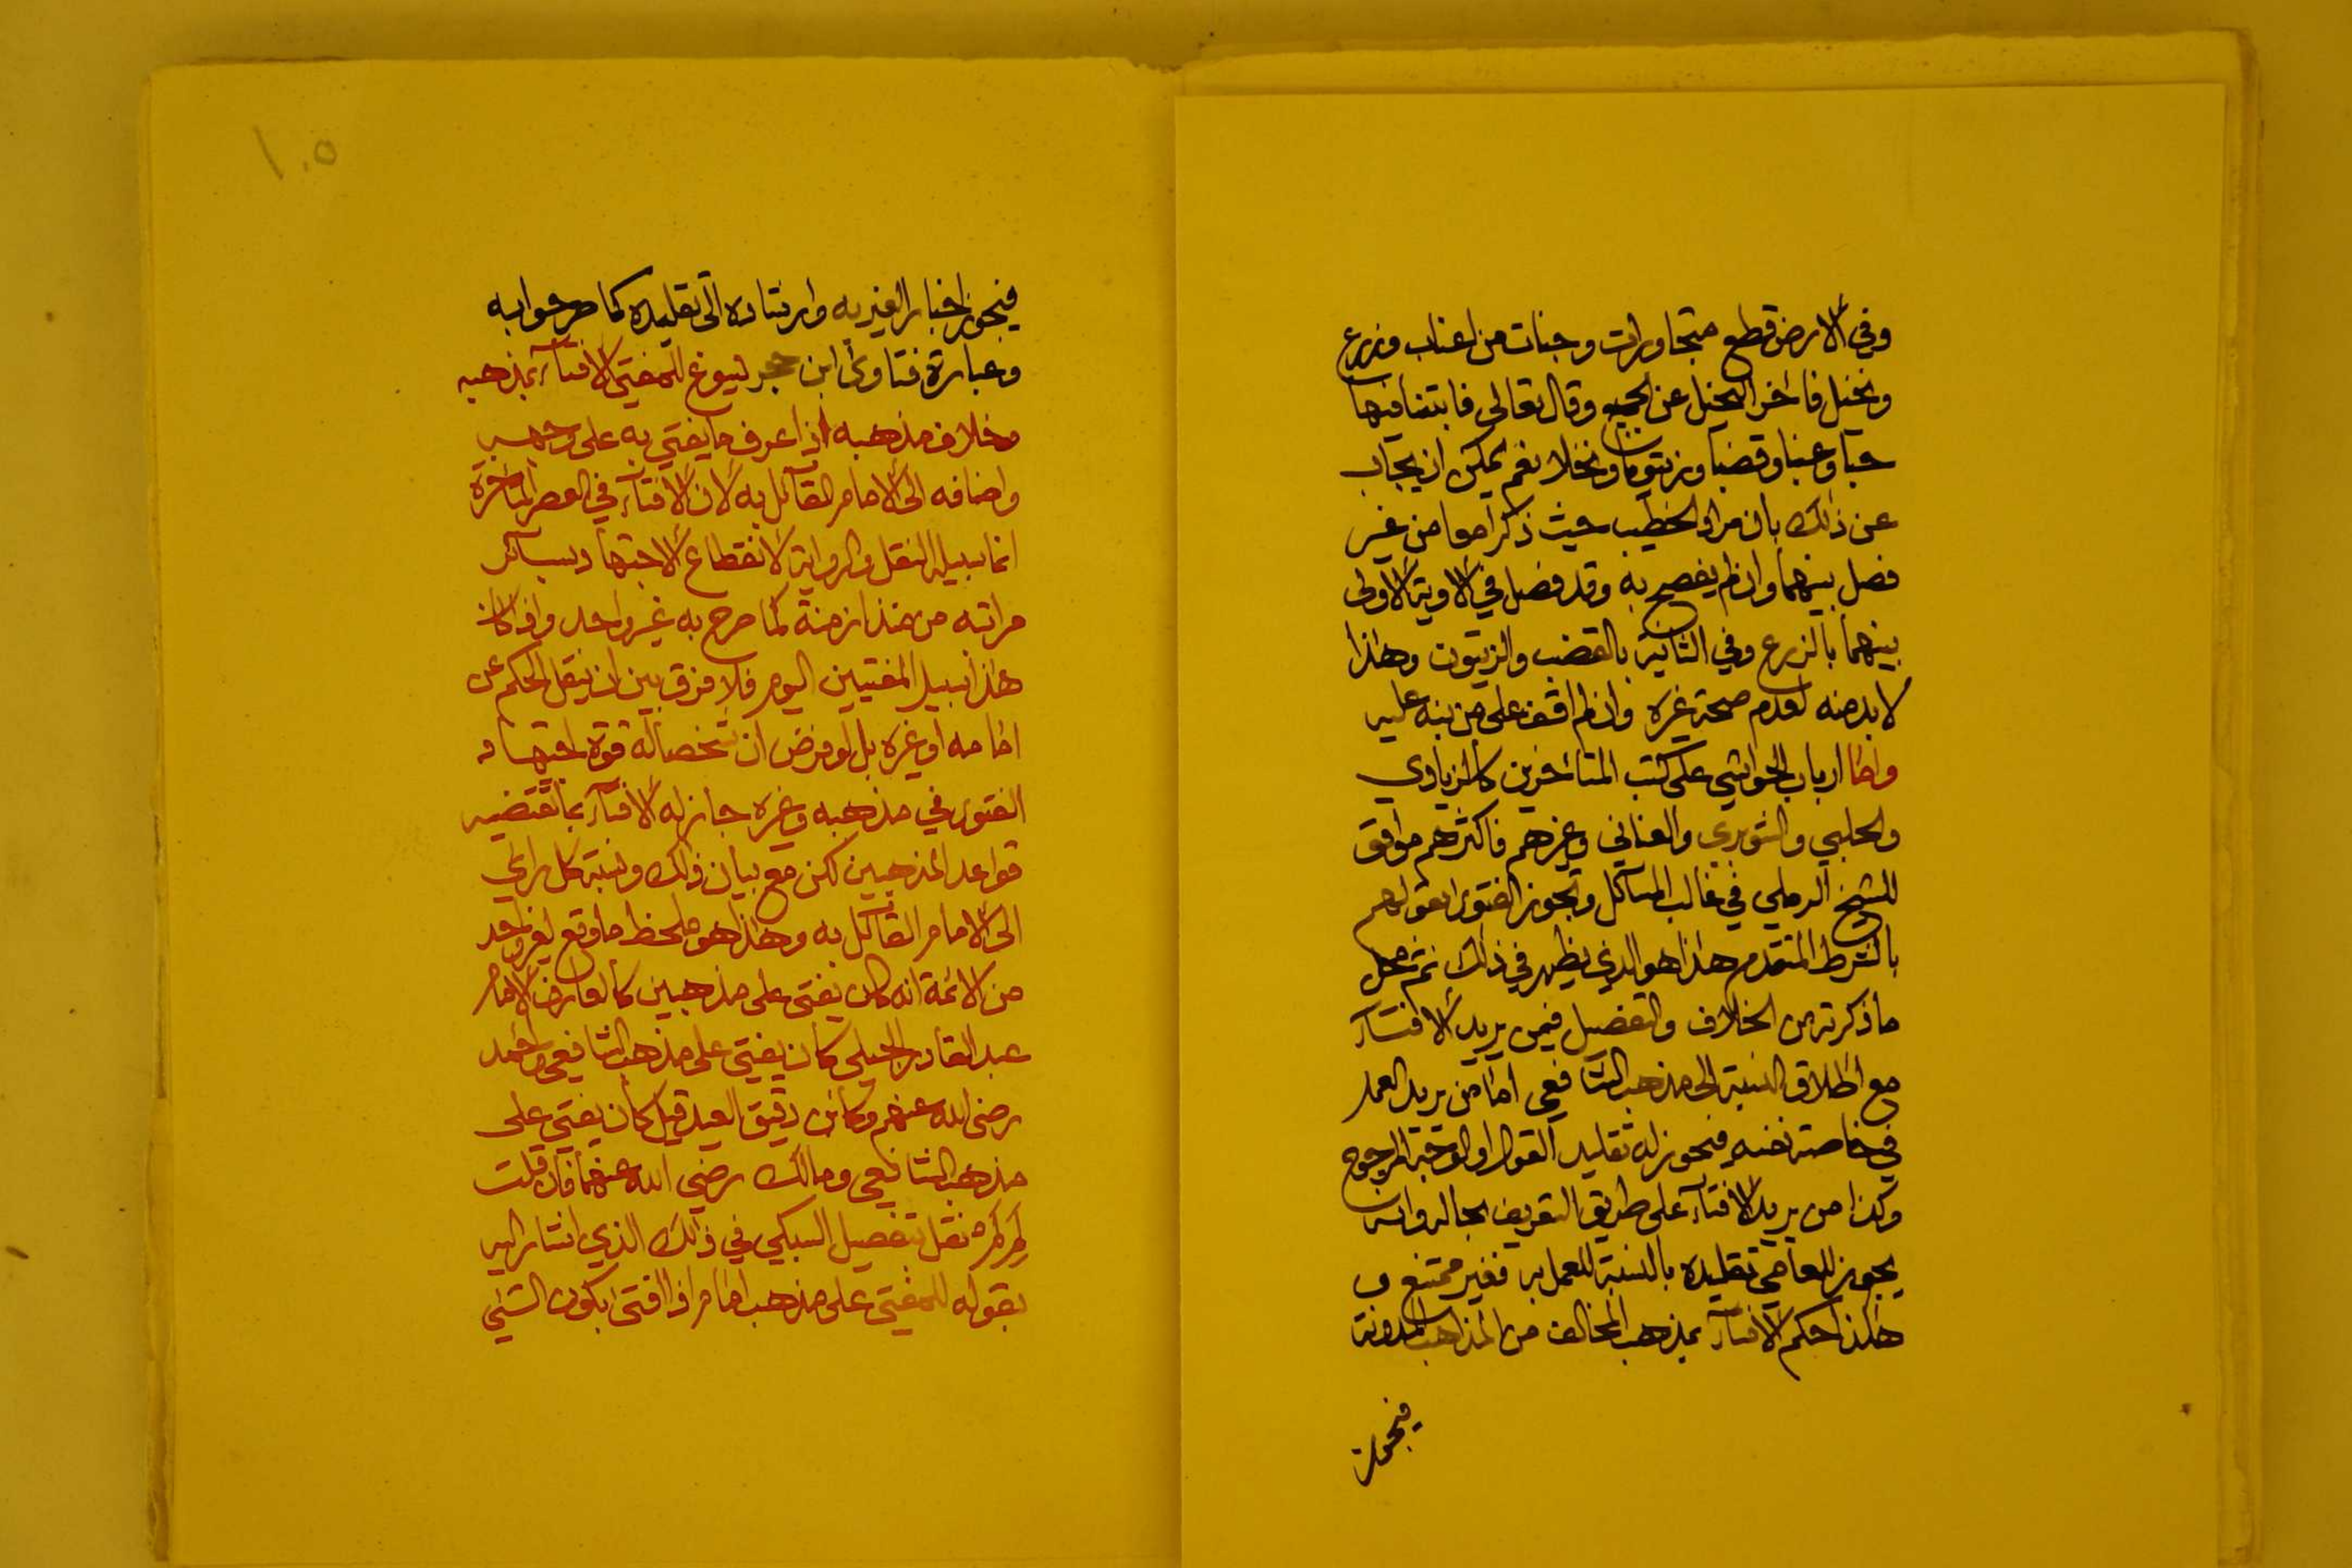 وفي الارض قطع متجاورات وجنات من اعناب وزرع
ونخيل فاخر النخيل عن الجميع وقال تعالى فانبتنا فيها
حبا وعنبا وقضبا وزيتونا ونخلا نعم يمكن ان يجاب
عن ذلك بان مراد الخطيب حيث ذكرا معا من غير
فصل بينهما وان لم يفصح به وقد فصل في الاوية الاولى
بينهما بالزرع وفي الثانية بالقضب والزيتون وهذا
لا بد منه لعدم صحة غيره وان لم اقف على من نبه عليه
واما ارباب الحواشي على كتب المتاخرين كالزيادي
والحلبي والشوبري والعناني وغيرهم فاكثرهم موافق
للشيخ الرملي في غالب المسآئل وتجوز الفتوى بقولهم
بالشرط المتقدم هذا هو الذي يظهر في ذلك ثم محل
ما ذكرته من الخلاف والتفصيل فيمن يريد الافتآء
مع اطلاق النسبة الى مذهب الشافعي اما من يريد العمل
في خاصة نفسه فيجوز له تقليد القول او الوجه المرجوح
وكذا من يريد الافتآء على طريق التعريف بحاله وانه
يجوز للعامي تقليده بالنسبة للعمل به فغير ممتنع و
هكذا حكم الافتآء بمذهب المخالف من المذاهب المدونة
فيجوز
١٠٥
فيجوز اخبار الغير به وارشاده الى تقليده كما مر جوابه
وعبارة فتاوى ابن حجر يسوغ للمفتي الافتآء بمذهبه
وخلاف مذهبه اذا عرف ما يفتي به على وجهه
واضافه الى الامام القآئل به لان الافتآء في العصر المتاخرة
انما سبيله النقل والرواية لانقطاع الاجتهاد بسآئر
مراتبه من منذ ازمنة كما صرح به غير واحد واذ كان
هذا سبيل المفتيين اليوم فلا فرق بين ان ينقل الحكم عن
امامه او غيره بل لو فرض ان شخصا له قوة اجتهاد
الفتوى في مذهبه وغيره جاز له الافتآء بما تقتضيه
قواعد المذهبين لكن مع بيان ذلك ونسبة كل راي
الى الامام القآئل به وهذا هو ملحظ ما وقع لغير واحد
من الائمة انه كان يفتى على مذهبين كالعارف الامام
عبد القادر الجيلي كان يفتي على مذهب الشافعي واحمد
رضي الله عنهم وكابن دقيق العيد قيل كان يفتي على
مذهب الشافعي ومالك رضي الله عنهما فان قلت
نقل تفصيل السبكي في ذلك الذي اشار اليه
بقوله للمفتي على مذهب امام اذا افتى بكون الشئ